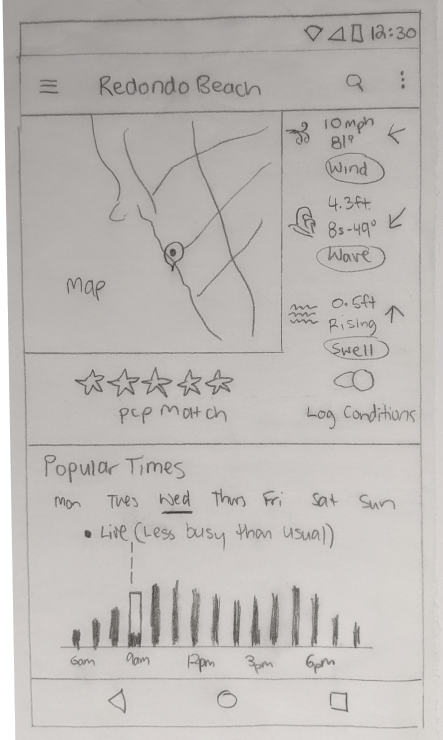 12:30
Redondo Beach
10mph
81°
Wind
4.3ft
8s-49°
Wave
0.5ft
Rising
Swell
Map
pcp Match
Log Conditions
Popular Times
Mon Tues Wed Thurs Fri Sat Sun
• Live (Less busy than usual)
6am 9am 12pm 3pm 6pm